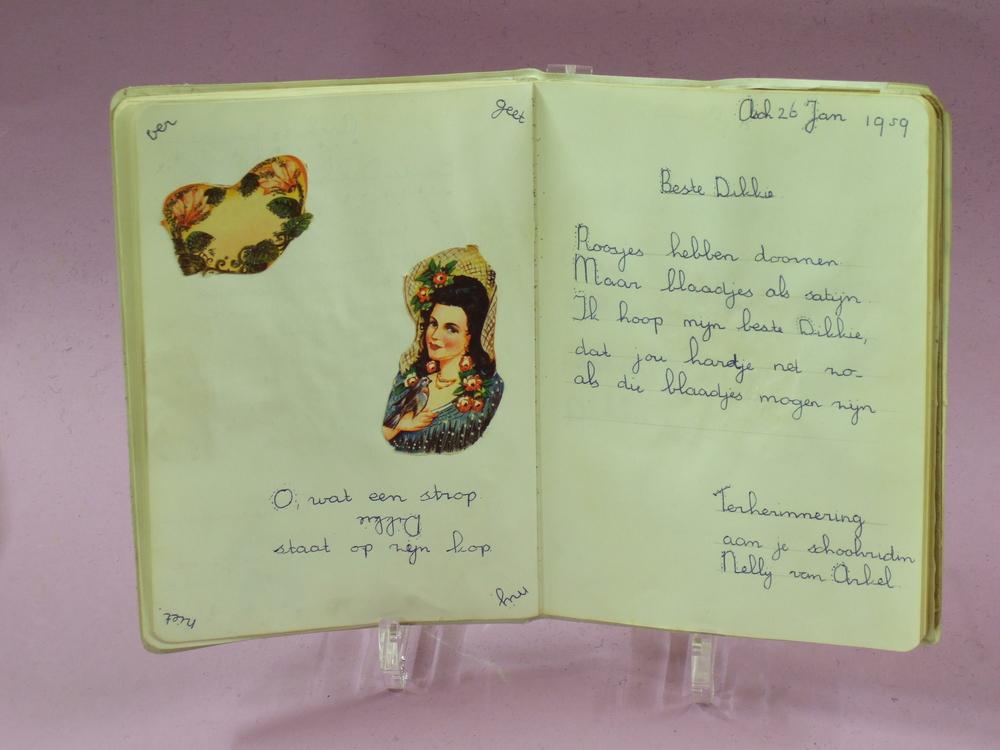 ver
geet
O, wat een strop
Dikkie
staat op zijn kop.
mij
niet
Asch 26 Jan 1959
Beste Dikkie
Roosjes hebben doornen
Maar blaadjes als satijn
Ik hoop mijn beste Dikkie,
dat jou hardje net zo-
als die blaadjes mogen zijn
Terherinnering
aan je
Nelly van Arkel